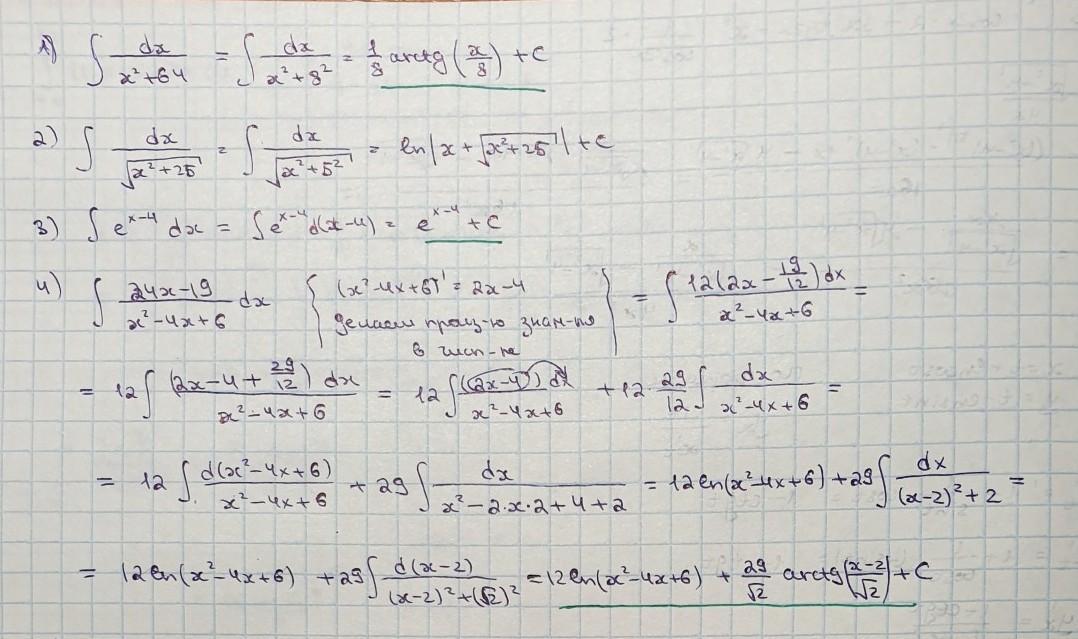 1) ∫ dx/(x²+64) = ∫ dx/(x²+8²) = 1/8 arctg (x/8) + C
2) ∫ dx/√(x²+25) = ∫ dx/√(x²+5²) = ln|x+√(x²+25)| + C
3) ∫ e^(x-4) dx = ∫ e^(x-4) d(x-4) = e^(x-4) + C
4) ∫ (24x-19)/(x²-4x+6) dx { (x²-4x+6)' = 2x-4 делаем произ-ю знам-ля в числ-ле } = ∫ 12(2x - 19/12) dx/(x²-4x+6) =
= 12 ∫ (2x-4+29/12) dx/(x²-4x+6) = 12 ∫ ((2x-4)) dx/(x²-4x+6) + 12·29/12 ∫ dx/(x²-4x+6) =
= 12 ∫ d(x²-4x+6)/(x²-4x+6) + 29 ∫ dx/(x²-2·x·2+4+2) = 12 ln(x²-4x+6) + 29 ∫ dx/((x-2)²+2) =
= 12 ln(x²-4x+6) + 29 ∫ d(x-2)/((x-2)²+(√2)²) = 12 ln(x²-4x+6) + 29/√2 arctg((x-2)/√2) + C